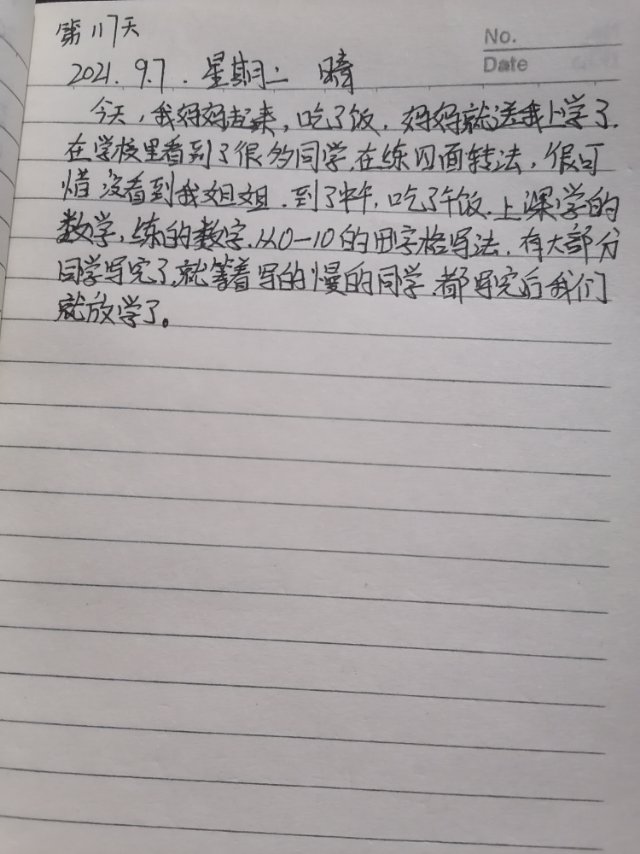 第117天
No.
Date
2021.9.7.星期二 晴
今天,我妈妈起来,吃了饭,妈妈就送我上学了.
在学校里看到了很多同学,在练四面转法,很可
惜没看到我姐姐.到了中午,吃了午饭.上课学的
数学,练的数字,从0-10的田字格写法.有大部分
同学写完了,就等着写的慢的同学.都写完后我们
就放学了。